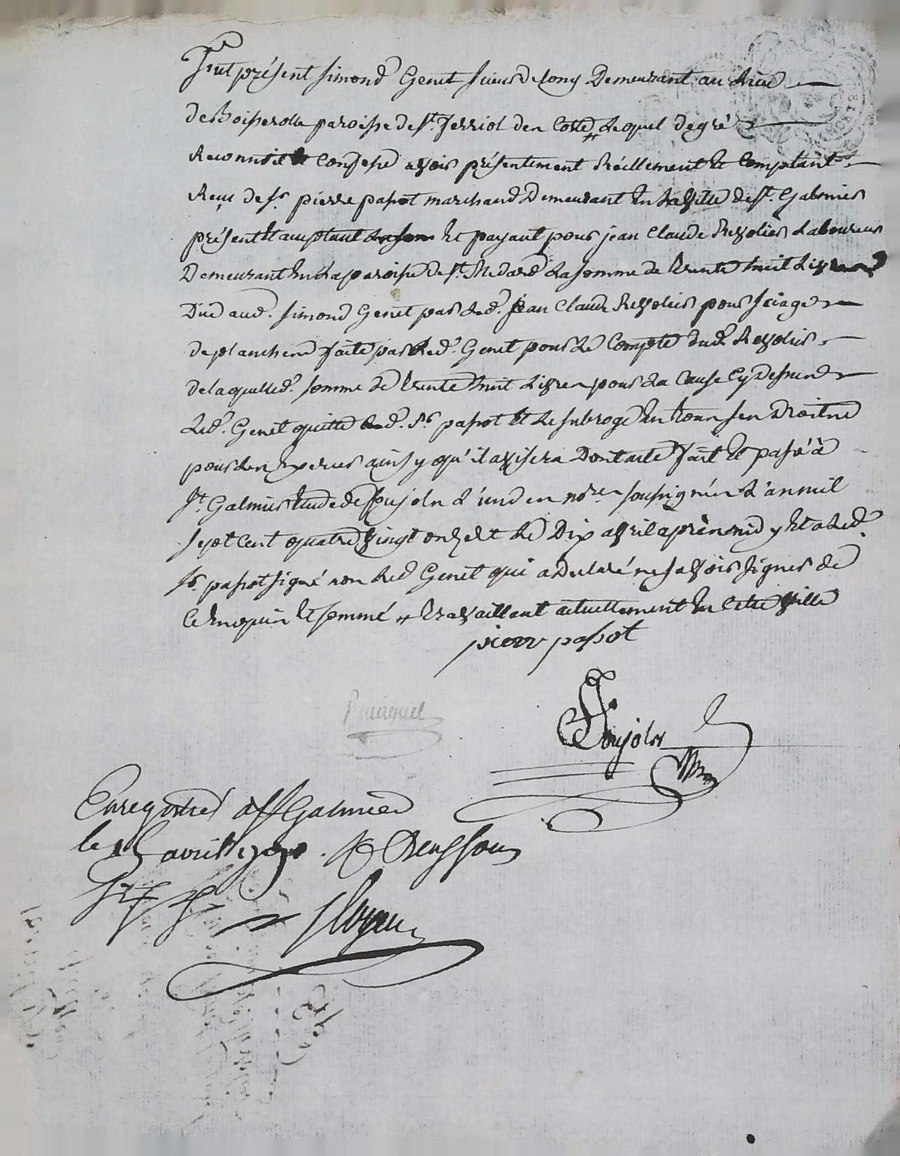 Fut présent Simond Genet sieur de long Demeurant au lieu
de Boisserolle paroisse de st. ferriol den Coste # Lequel de gré
Reconnoit Et Confesse avoir présentement Réellement Et Comptant
Reçu de sr. pierre passot marchand Demeurant En La Ville de st. Galmier
présent Et acceptant Et payant pour jean Claude Revolier Laboureur
Demeurant En La paroisse de st. Medard La somme de trente huit Livres
Due aud. Simond Genet par Led. Jean Claude Revolier pour sciage
de planches faite par Led. Genet pour Le Compte dud. Revolier
de laquelle d. somme de trente huit Livres pour La Cause Cy Dessus
Led. Genet quitte Led. Sr. passot Et Le subroge En tous ses Droits
pour Les Exercer ainsy qu'il avisera Dont acte fait Et passé à
St. Galmier Etude de Poujols L'un des nores. soussignés L'an mil
sept Cent quatre Vingt onze Et Le Dix avril après midy Et a Led.
Sr. passot signé non Led. Genet qui a Declaré ne savoir signer de
Ce Enquis Et sommé # travaillant actuellement En Cette Ville
pierre passot
Poujols
Nre
Enregistré a St Galmier
le 15 avril